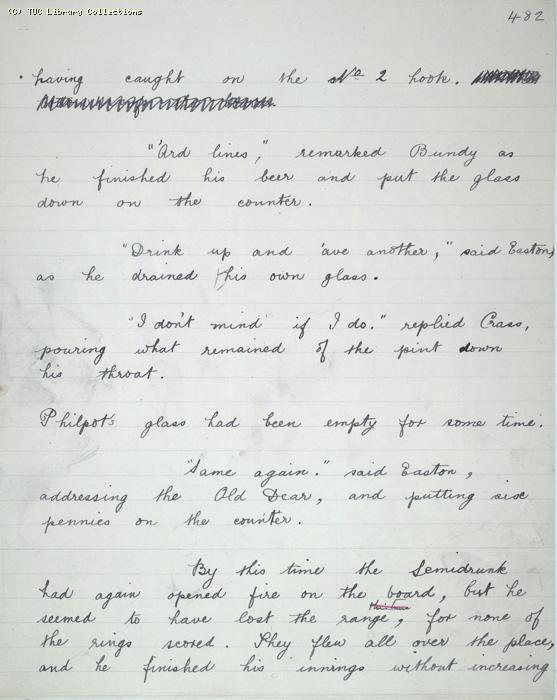 (C) TUC Library Collections
482
having caught on the No 2 hook.
"'Ard lines," remarked Bundy as
he finished his beer and put the glass
down on the counter.
"Drink up and 'ave another," said Easton,
as he drained his own glass.
"I don't mind if I do." replied Crass,
pouring what remained of the pint down
his throat.
Philpot's glass had been empty for some time.
"Same again." said Easton,
addressing the Old Dear, and putting six
pennies on the counter.
By this time the Semidrunk
had again opened fire on the board, but he
seemed to have lost the range, for none of
the rings scored. They flew all over the place,
and he finished his innings without increasing